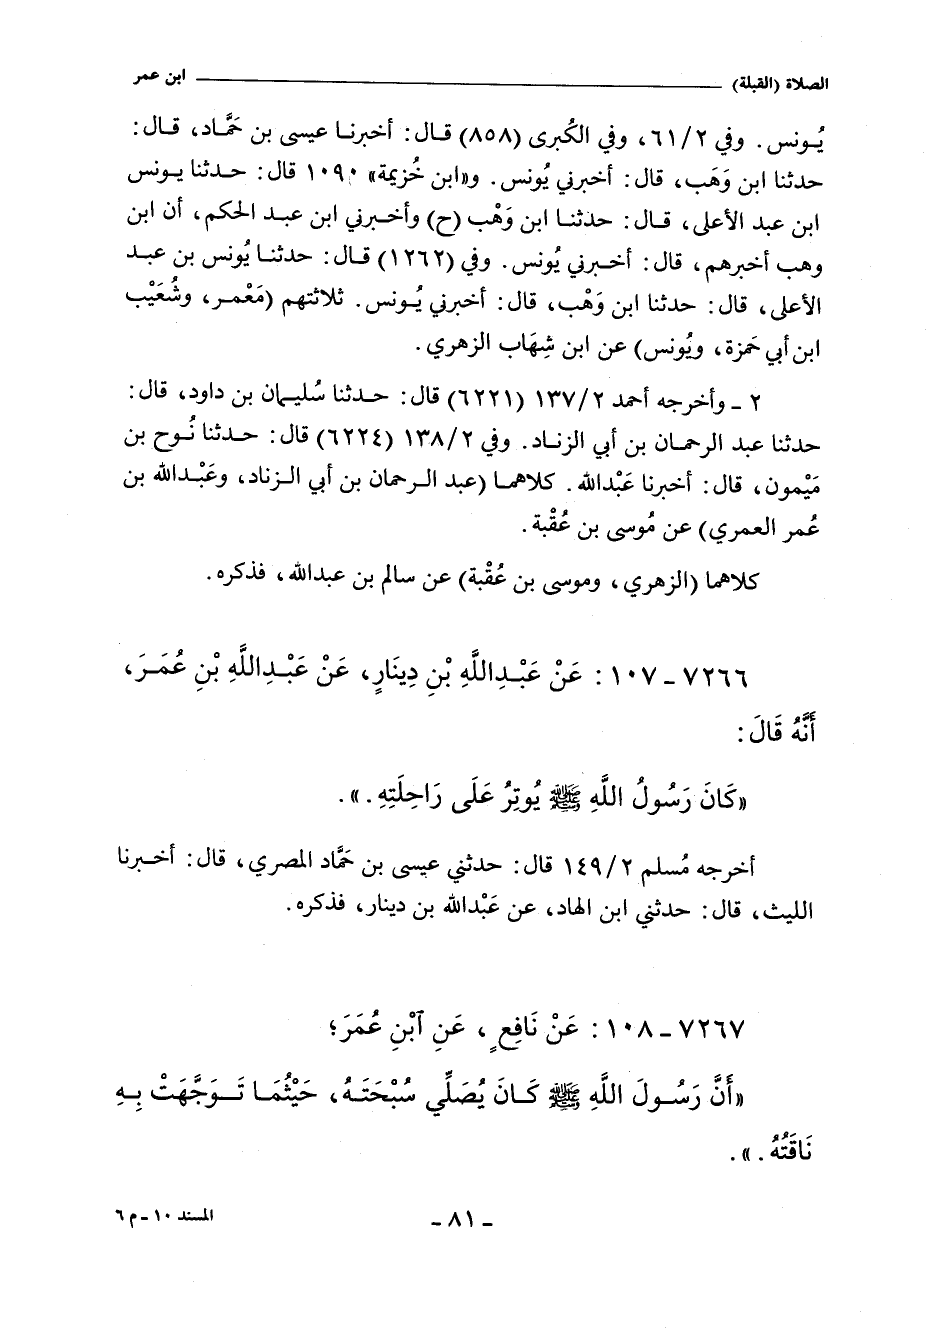 الصلاة (القبلة) ــــــ ابن عمر
يُونس. وفي ٢/٦١، وفي الكُبرى (٨٥٨) قال: أخبرنا عيسى بن حَمَّاد، قال:
حدثنا ابن وَهَب، قال: أخبرني يُونس. و«ابن خُزيمة» ١٠٩٠ قال: حدثنا يونس
ابن عبد الأعلى، قال: حدثنا ابن وَهْب (ح) وأخبرني ابن عبد الحكم، أن ابن
وهب أخبرهم، قال: أخبرني يُونس. وفي (١٢٦٢) قال: حدثنا يُونس بن عبد
الأعلى، قال: حدثنا ابن وَهْب، قال: أخبرني يُونس. ثلاثتهم (مَعْمر، وشُعَيْب
ابن أبي حَمزة، ويُونس) عن ابن شِهَاب الزهري.
٢ ـ وأخرجه أحمد ٢/١٣٧ (٦٢٢١) قال: حدثنا سُليمان بن داود، قال:
حدثنا عبد الرحمان بن أبي الزناد. وفي ٢/١٣٨ (٦٢٢٤) قال: حدثنا نُوح بن
مَيْمون، قال: أخبرنا عَبْدالله. كلاهما (عبد الرحمان بن أبي الزناد، وعَبْدالله بن
عُمر العمري) عن مُوسى بن عُقْبة.
كلاهما (الزهري، وموسى بن عُقْبة) عن سالم بن عبدالله، فذكره.
٧٢٦٦ ـ ١٠٧: عَنْ عَبْدِاللَّهِ بْنِ دِينَارٍ، عَنْ عَبْدِاللَّهِ بْنِ عُمَرَ،
أَنَّهُ قَالَ:
«كَانَ رَسُولُ اللَّهِ ﷺ يُوتِرُ عَلَى رَاحِلَتِهِ.».
أخرجه مُسلم ٢/١٤٩ قال: حدثني عيسى بن حَمَّاد المصري، قال: أخبرنا
الليث، قال: حدثني ابن الهاد، عن عَبْدالله بن دينار، فذكره.
٧٢٦٧ ـ ١٠٨: عَنْ نَافِعٍ، عَنِ ٱبْنِ عُمَرَ؛
«أَنَّ رَسُولَ اللَّهِ ﷺ كَانَ يُصَلِّي سُبْحَتَهُ، حَيْثُمَا تَوَجَّهَتْ بِهِ
نَاقَتُهُ.».
ـ ٨١ ـ
المسند ١٠ ـ م ٦